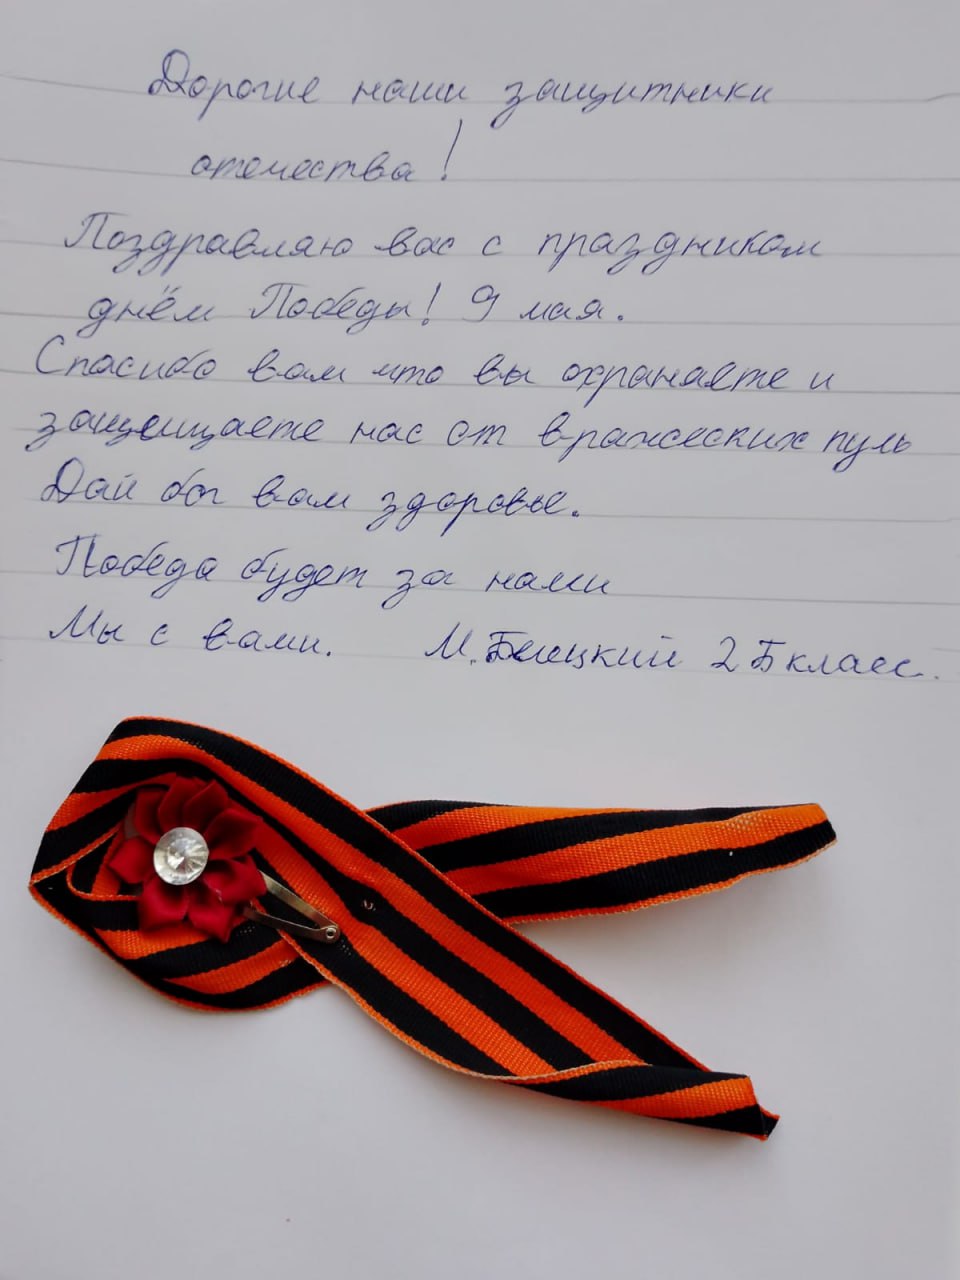 Дорогие наши защитники
отечества!
Поздравляю вас с праздником
днём Победы! 9 мая.
Спасибо вам что вы охраняете и
защещаете нас от вражеских пуль
Дай бог вам здоровье.
Победа будет за нами
Мы с вами. М. 2 Б класс.